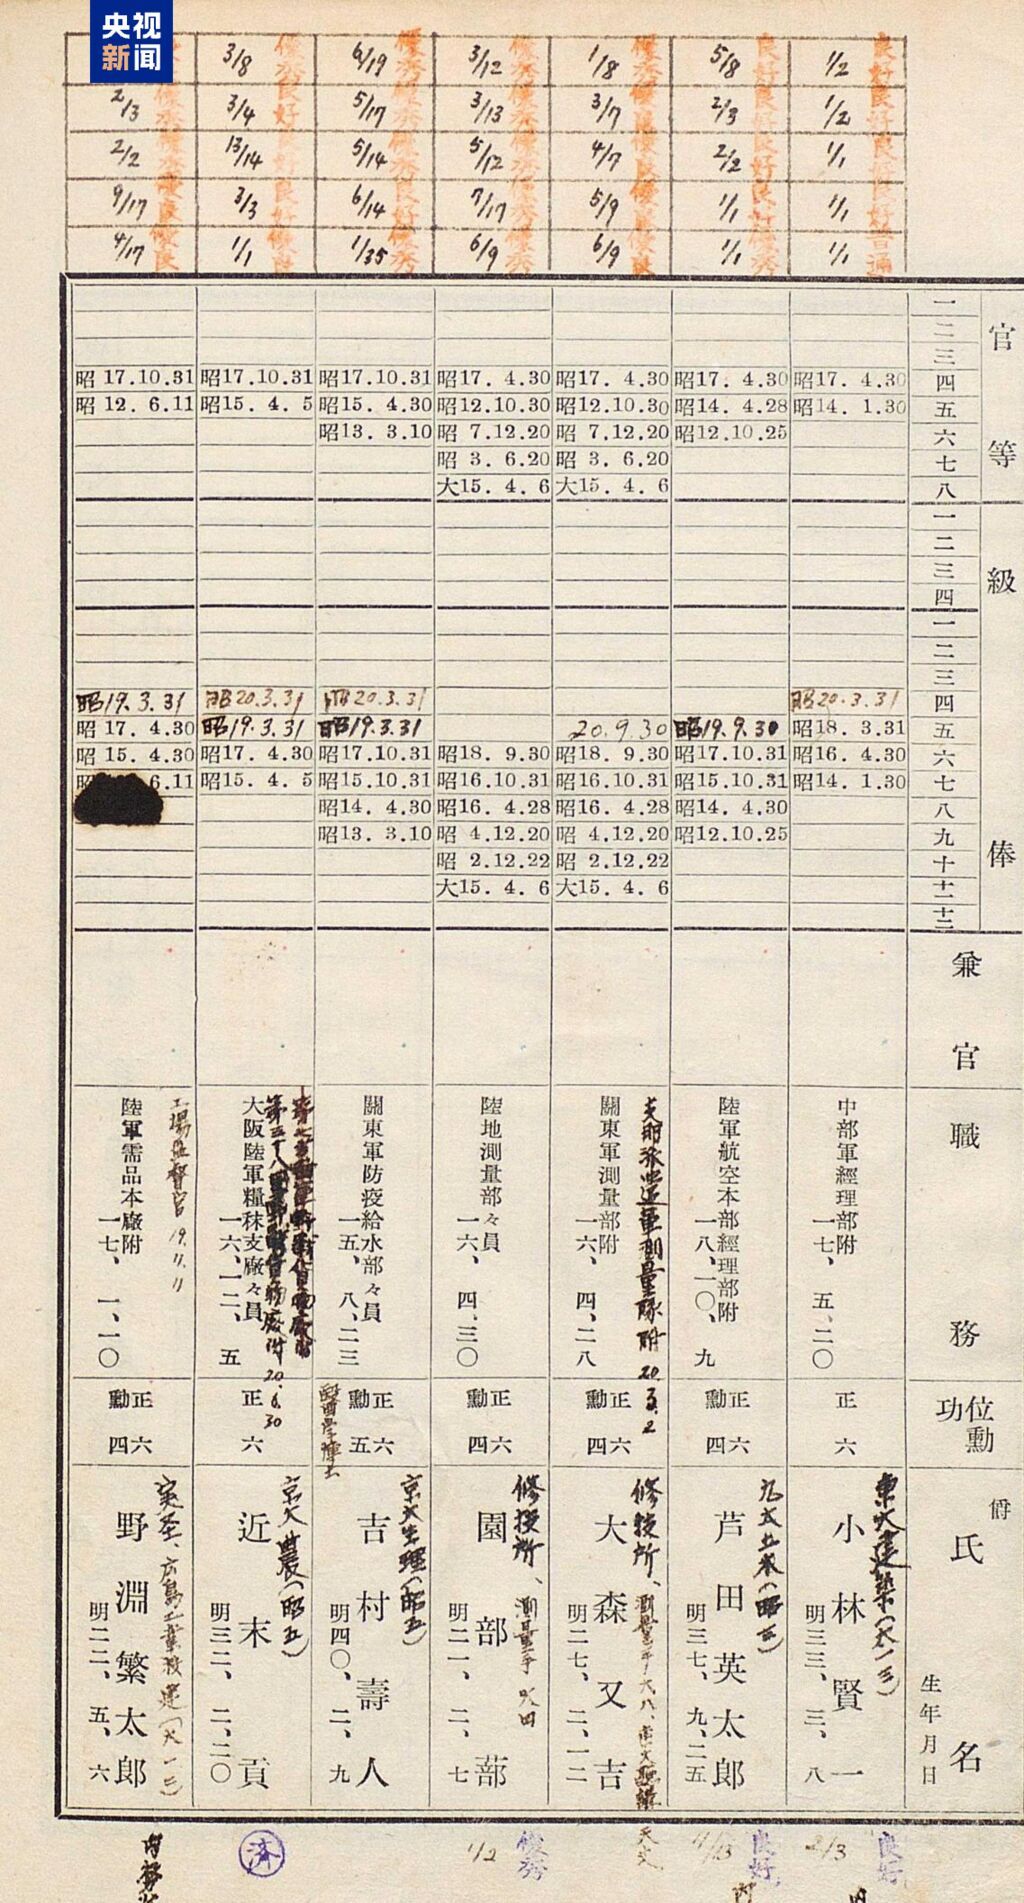 央视
新闻
3/8 優秀
6/19 優秀
3/12 優秀
1/8 優秀
5/8 良好
1/2 良好
2/3 優秀
3/4 良好
5/17 優秀
3/13 優秀
3/7 優良
2/3 良好
1/2 良好
2/2 優秀
13/14 優秀
5/14 優秀
5/12 優秀
4/7 優良
2/2 良好
1/1 良好
9/17 優良
3/3 良好
6/14 良好
7/17 優秀
5/9 優良
1/1 良好
1/1 良好
4/17 優良
1/1 優良
1/35 優秀
6/9 優秀
6/9 優良
1/1 優秀
1/1 普通
官等
一
二
三
四
五
六
七
八
級俸
一
二
三
四
一
二
三
四
五
六
七
八
九
十
十一
十二
兼官
職務
位勳功
爵
氏名
生年月日
昭17. 4.30
昭14. 1.30
昭20.3.31
昭18. 3.31
昭16. 4.30
昭14. 1.30
中部軍經理部附
一七、五、二〇
正六
東大建築(大一三)
小林賢一
明三三、三、八
昭17. 4.30
昭14. 4.28
昭12.10.25
昭19.9.30
昭17.10.31
昭15.10.31
昭14. 4.30
昭12.10.25
陸軍航空本部經理部附
一八、一〇、九
正六
勳四
九大土木(昭三)
芦田英太郎
明三七、九、二五
昭17. 4.30
昭12.10.30
昭 7.12.20
昭 3. 6.20
大15. 4. 6
20.9.30
昭18. 9.30
昭16.10.31
昭16. 4.28
昭 4.12.20
昭 2.12.22
大15. 4. 6
支那派遣軍測量隊附
關東軍測量部附
一六、四、二八
正六
勳四
修技所、
大森又吉
明二七、二、一二
昭17. 4.30
昭12.10.30
昭 7.12.20
昭 3. 6.20
大15. 4. 6
昭18. 9.30
昭16.10.31
昭16. 4.28
昭 4.12.20
昭 2.12.22
大15. 4. 6
陸地測量部々員
一六、四、三〇
正六
勳四
修技所、測量手
園部蔀
明二一、二、七
昭17.10.31
昭15. 4.30
昭13. 3.10
昭20.3.31
昭19.3.31
昭17.10.31
昭15.10.31
昭14. 4.30
昭13. 3.10
關東軍防疫給水部々員
一五、八、二三
正六
勳五
醫学博士
京大生理(昭五)
吉村壽人
明四〇、二、九
昭17.10.31
昭15. 4. 5
昭20.3.31
昭19.3.31
昭17. 4.30
昭15. 4. 5
20.6.30
大阪陸軍糧秣支廠々員
一六、一二、五
正六
京大農(昭五)
近末貢
明三二、二、二〇
昭 17.10.31
昭 12. 6.11
昭19.3.31
昭 17. 4.30
昭 15. 4.30
6.11
工場監督官 19.11.11
陸軍需品本廠附
一七、一、一〇
正六
勳四
広島工業
野淵繁太郎
明二二、五、六
済
1/2 優秀
天文
良好
2/3 良好